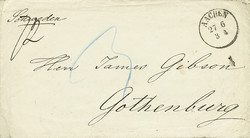 Schweden
AACHEN
27 6
3 4
Herr James Gibson
Gothenburg